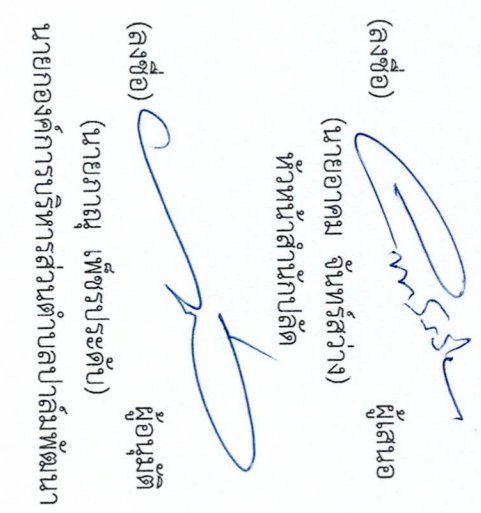 (ลงชื่อ) ผู้เสนอ
(นายอาคม จันทร์สว่าง)
หัวหน้าสำนักปลัด
(ลงชื่อ) ผู้อนุมัติ
(นายภาณุ เพ็ชรประดับ)
นายกองค์การบริหารส่วนตำบลปาล์มพัฒนา